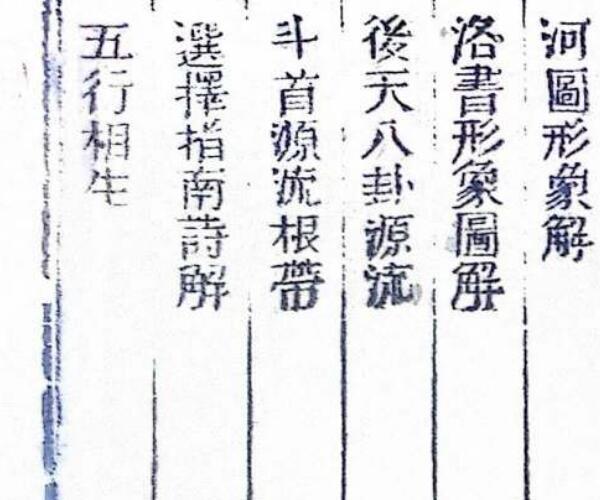 河圖形象解
洛書形象圖解
後天八卦源流
斗首源流根帶
選擇指南詩解
五行相生